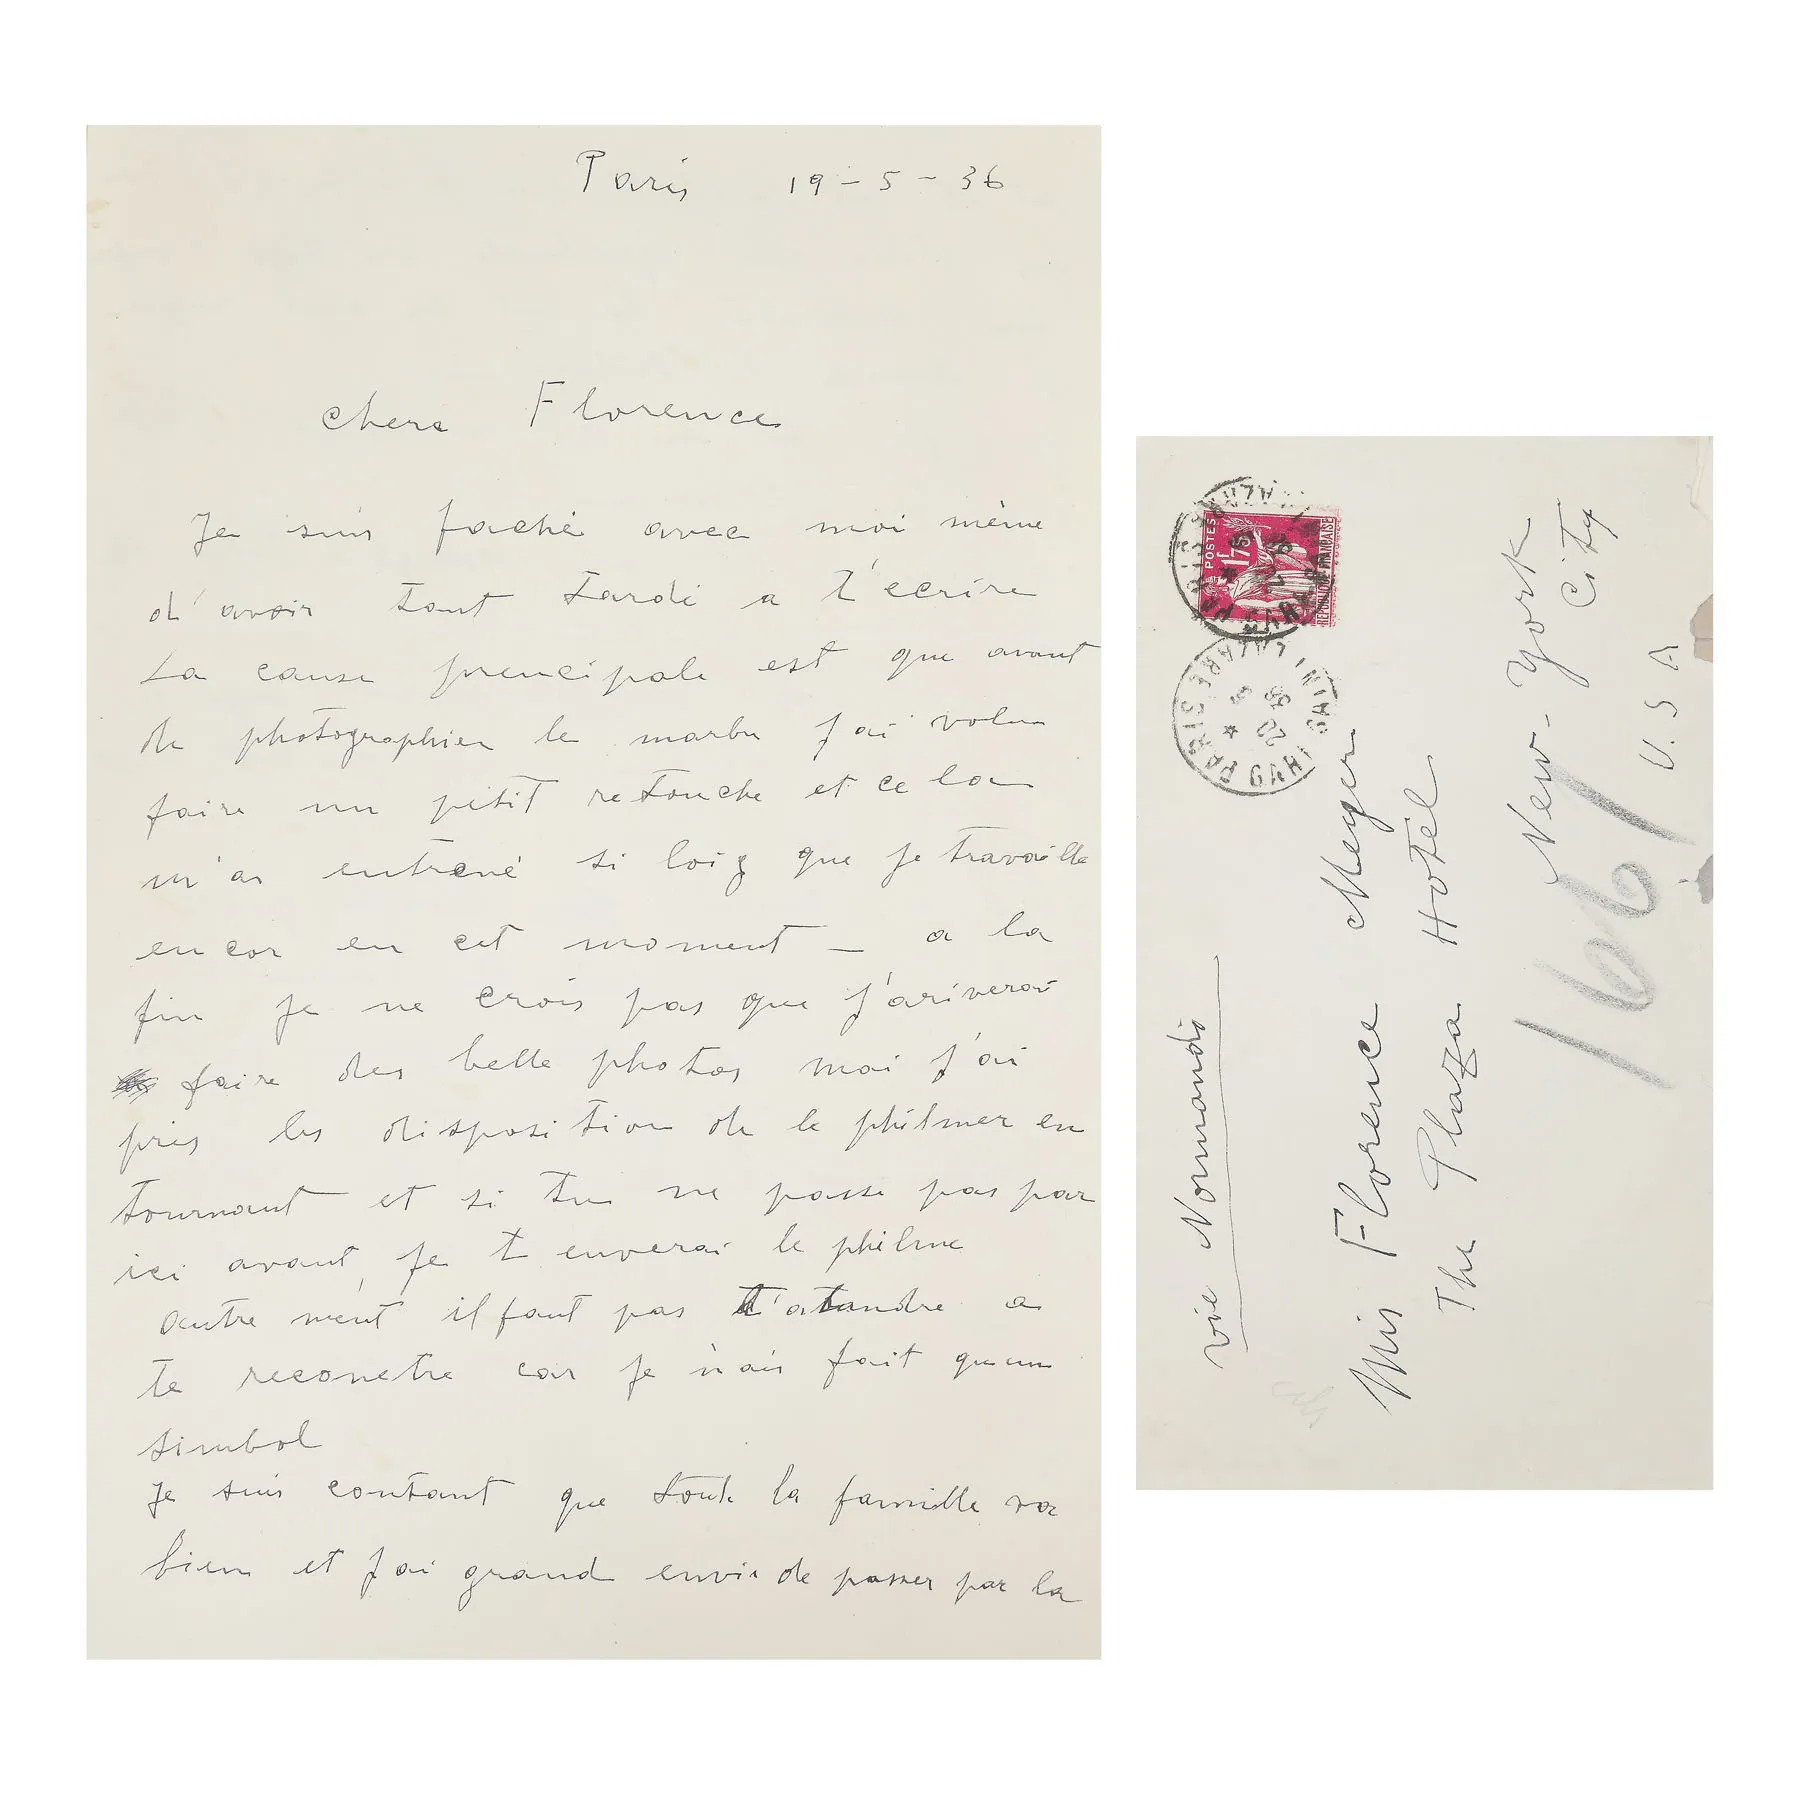 Paris 19-5-36
chere Florence
Je suis faché avec moi mème
d'avoir tant tardé a t'ecrire
La cause prencipale est que avant
de photographier le marbre J'ai volu
faire un petit retouche et ce la
m'a entrené si loig que je travaille
encor en cet moment _ a la
fin Je ne crois pas que J'ariverai
faire des belle photos moi J'ai
pris les disposition de le philmer en
tournant et si tu ne passe pas par
ici avant, Je t enverai le philme
autre ment il faut pas t'atandre a
te reconetre car Je n'ais fait qu un
simbol
Je suis contant que toute la famille va
bien et J'ai grand envie de passer par la
POSTES
1f75
REPUBLIQUE FRANÇAISE
PARIS GARE SAINT LAZARE
20
36
vie Normandie
Mis Florence Meyer
The Plaza Hotel
New-York
City
U.S A
166